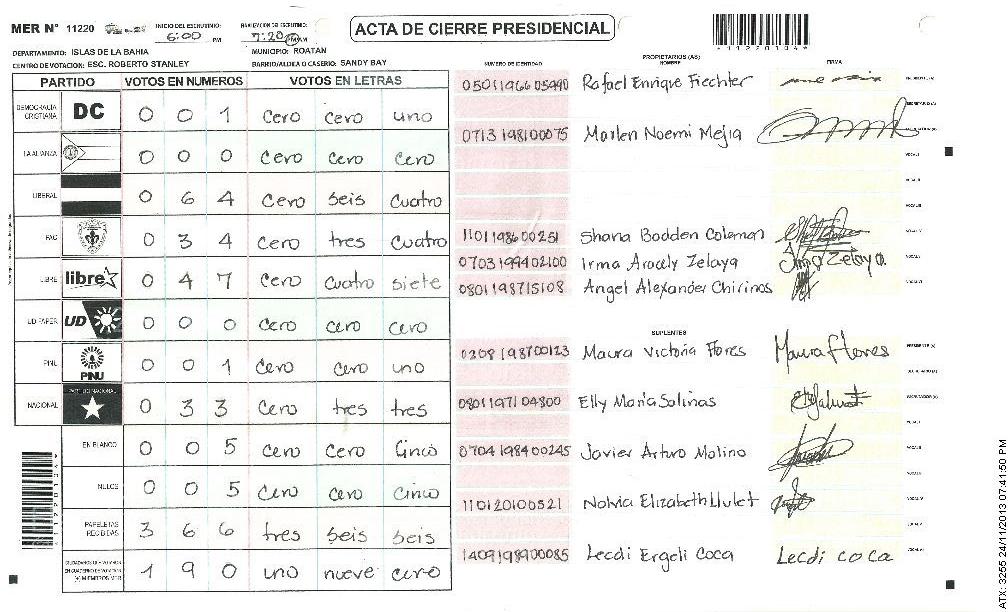 MER N° 11220
INICIO DEL ESCRUTINIO:
6:00 PM
FINALIZACION DE ESCRUTINIO:
7:20 PM
ACTA DE CIERRE PRESIDENCIAL
DEPARTAMENTO: ISLAS DE LA BAHIA
MUNICIPIO: ROATAN
CENTRO DE VOTACION: ESC. ROBERTO STANLEY
BARRIO/ALDEA O CASERIO: SANDY BAY
PARTIDO VOTOS EN NUMEROS VOTOS EN LETRAS
DEMOCRACIA CRISTIANA DC 0 0 1 cero cero uno
LA ALIANZA 0 0 0 cero cero cero
LIBERAL 0 6 4 cero seis cuatro
PAC 0 3 4 cero tres cuatro
LIBRE libre 0 4 7 cero cuatro siete
UD FAPER UD 0 0 0 cero cero cero
PINU PINU 0 0 1 cero cero uno
NACIONAL PARTIDO NACIONAL 0 3 3 cero tres tres
EN BLANCO 0 0 5 cero cero cinco
NULOS 0 0 5 cero cero cinco
PAPELETAS RECIBIDAS 3 6 6 tres seis seis
1 9 0 uno nueve cero
NUMERO DE IDENTIDAD
PROPIETARIOS (AS)
NOMBRE
FIRMA
Rafael Enrique Fiechter
0713198100075 Marlen Noemi Mejia
1101198600251 Shana Bodden Coleman
0703199402100 Irma Aracely Zelaya Irma Zelaya
0801198715108 Angel Alexander Chirinos
SUPLENTES
0208198700123 Maura Victoria Flores Maura Flores
0801197104800 Elly Maria Salinas
0704198400245 Javier Arturo Molino
110120100521
1409198900085 Lecdi Ergeli Coca Lecdi coca
1122013 4
ATX: 3255 24/11/2013 07:41:50 PM